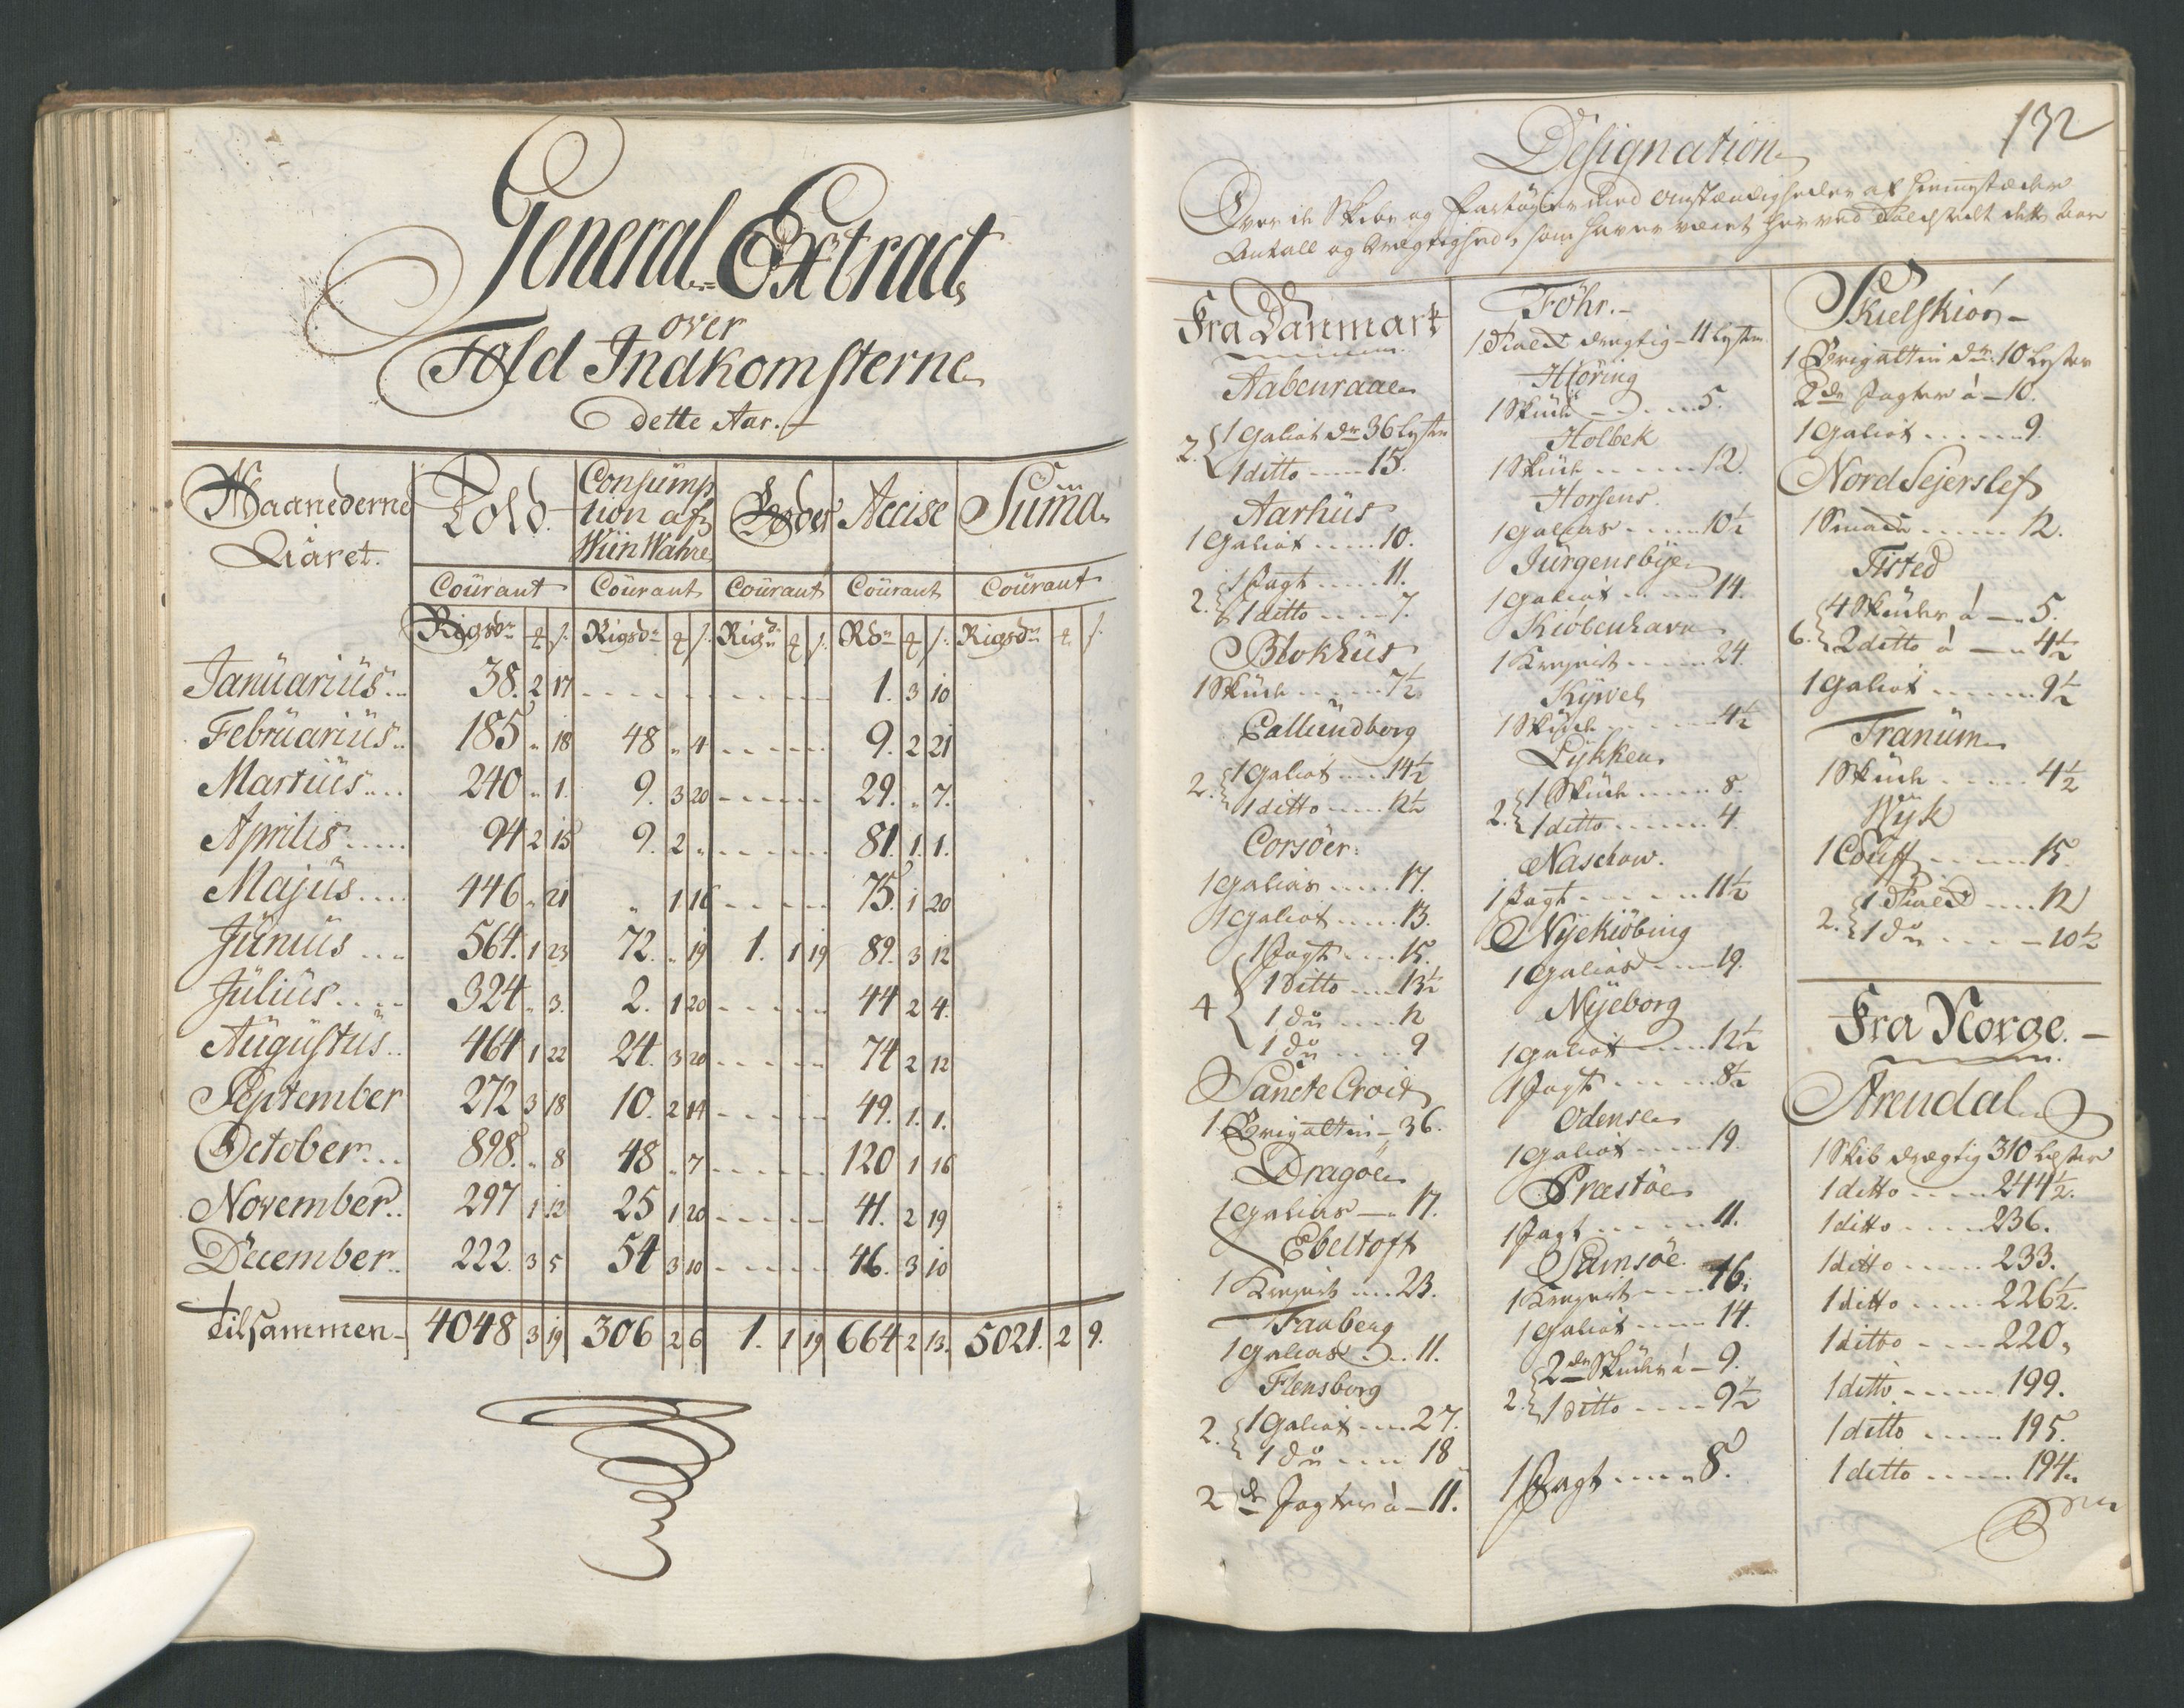 General Extract
over
Told Indkomsterne
dette Aar.
Maanederne i Aaret. Told. Consumption af Wiin Wahre Accise Suma
Courant Courant Courant Courant Courant
Rigsdr ꝝ ß. Rigsdr ꝝ ß. Rigsdr ꝝ ß. Rdr ꝝ ß. Rigsdr ꝝ ß.
Januarius .. 38. 2 17 - - - - 1. 3 10
Februarius .. 185 „ 18 48 „ 4 - - - - 9. 2 21
Martius .... 240 „ 1. 9. 3 20 - - - - 29. „ 7.
Aprilis ..... 94 2 15 9. 2 „ - - - - 81. 1. 1.
Majus .... 446 „ 21 „ 1 16 - - - - 75. 1 20
Junius ... 564. 1 23 72. „ 19 1. 1 19 89. 3 12
Julius .... 324 „ 3. 2. 1 20 - - - - 44 2 4.
Augustus .. 464 1 22 24. 3 20 - - - - 74 2 12
September 272 3 18 10. 2 14 - - - - 49. 1. 1.
October ... 898. „ 8 48 „ 7 - - - - 120 1 16
November .. 297 1 12 25 1 20 - - - - 41. 2 19
December .. 222. 3 5 54 3 10 - - - - 46. 3 10
Tilsammen - 4048 3 19 306 2 6 1. 1 19 664 2 13. 5021. 2 9.
132
Designation
Over de Skibe og Fartøyer med Omstændigheder af Hiemstæder
Antall og Drægtighed, som haver været her ved Toldstedt dette Aar
Fra Danmark
Aabenraae
2. { 1 Galiot dr 36 Lester
1 ditto ---- 15.
Aarhus
1 Galiot ..... 10.
2. { 1 Jagt ..... 11.
1 ditto ..... 7.
Blokhus
1 Skude ..... 7½
Callundborg
2. { 1 Galiot .... 14½
1 ditto .... 12½
Corsöer.
1 Galias ..... 17.
1 Galiot ..... 13.
4 { 1 Jagt .... 15.
1 Ditto .... 13½
1 do ..... 12
1 do ..... 9
Sancte Croix
1 Brigattin - 36.
Dragöe
1 Galias --- 17.
Ebeltoft
1 Kreyert .... 23.
Fauberg
1 Galias ... 11.
Flensborg
2. { 1 Galiot ... 27.
1 do .... 18
2de Jagter à - 11.
Föhr. -
1 drægtig - 11 Lester
Hjöring
1 Skude ---- 5.
Holbek
1 Skude ..... 12.
Horsens.
1 Galias ..... 10½
Jürgensbÿe
1 Galiot ..... 14.
Kiöbenhavn
1 Kreyert ..... 24.
1 Skude ..... 4½
Lykken
2. { 1 Skude ..... 8.
1 ditto ..... 4.
Naschow.
1 Jagt ..... 11½
Nÿekiöbing
1 Galias ..... 19.
Nÿeborg
1 Galiot ..... 12½
1 Jagt ..... 8½
Odense
1 Galiot ..... 19.
Præstöe
1 Jagt ..... 11.
Samsöe.
1 Kreyert .... 16.
1 Galiot .... 14.
2. { 2de Skuder à - 9.
1 ditto .... 9½
1 Jagt .... 8.
Skielskiör -
1 Brigattin dr. 10 Lester
2de Jagter à - 10.
1 Galiot ..... 9.
Nord Sejerslef
1 ..... 12.
Tisted
6. { 4 Skuder à - 5.
2 ditto à - 4½
1 Galiot ..... 9½
Tranum
1 Skude ..... 4½
Wÿk
1 ..... 15.
2. { 1 ..... 12
1 do ..... 10½
Fra Norge. -
Arendal
1 Skib drægtig 310 Lester
1 ditto ..... 244½.
1 ditto ..... 236.
1 ditto ..... 233.
1 ditto ..... 226½.
1 ditto ..... 220.
1 ditto ..... 199.
1 ditto ..... 195.
1 ditto ..... 194.